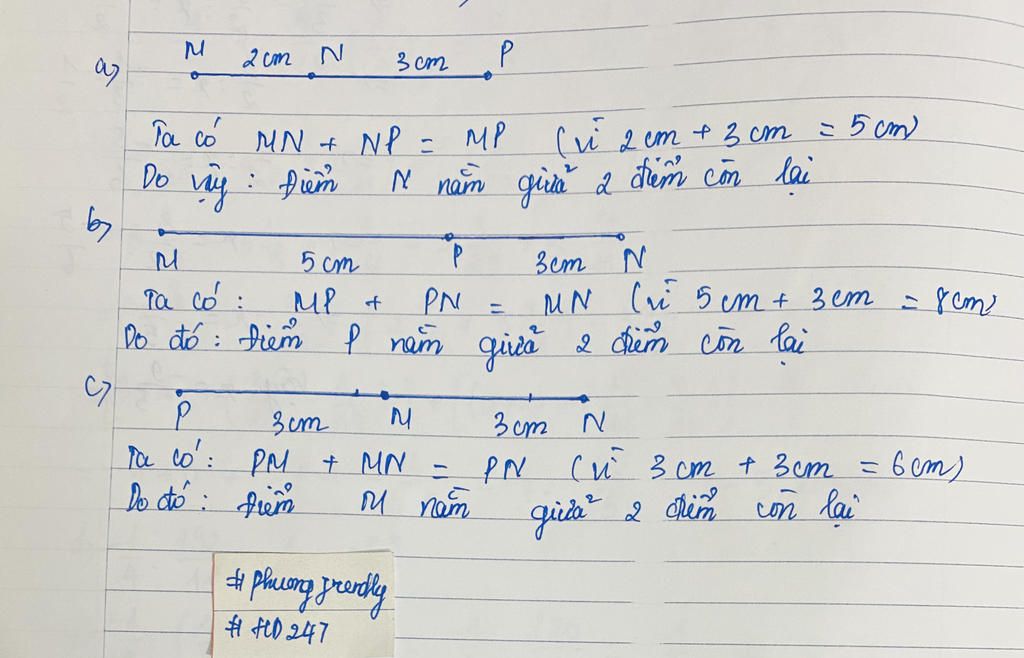 a) M 2cm N 3cm P
Ta có MN + NP = MP (vì 2cm + 3cm = 5cm)
Do vậy : Điểm N nằm giữa 2 điểm còn lại
b)
M 5cm P 3cm N
Ta có : MP + PN = MN (vì 5cm + 3cm = 8cm)
Do đó : Điểm P nằm giữa 2 điểm còn lại
c)
P 3cm M 3cm N
Ta có : PM + MN = PN (vì 3cm + 3cm = 6cm)
Do đó : Điểm M nằm giữa 2 điểm còn lại
#phuong
#HD247